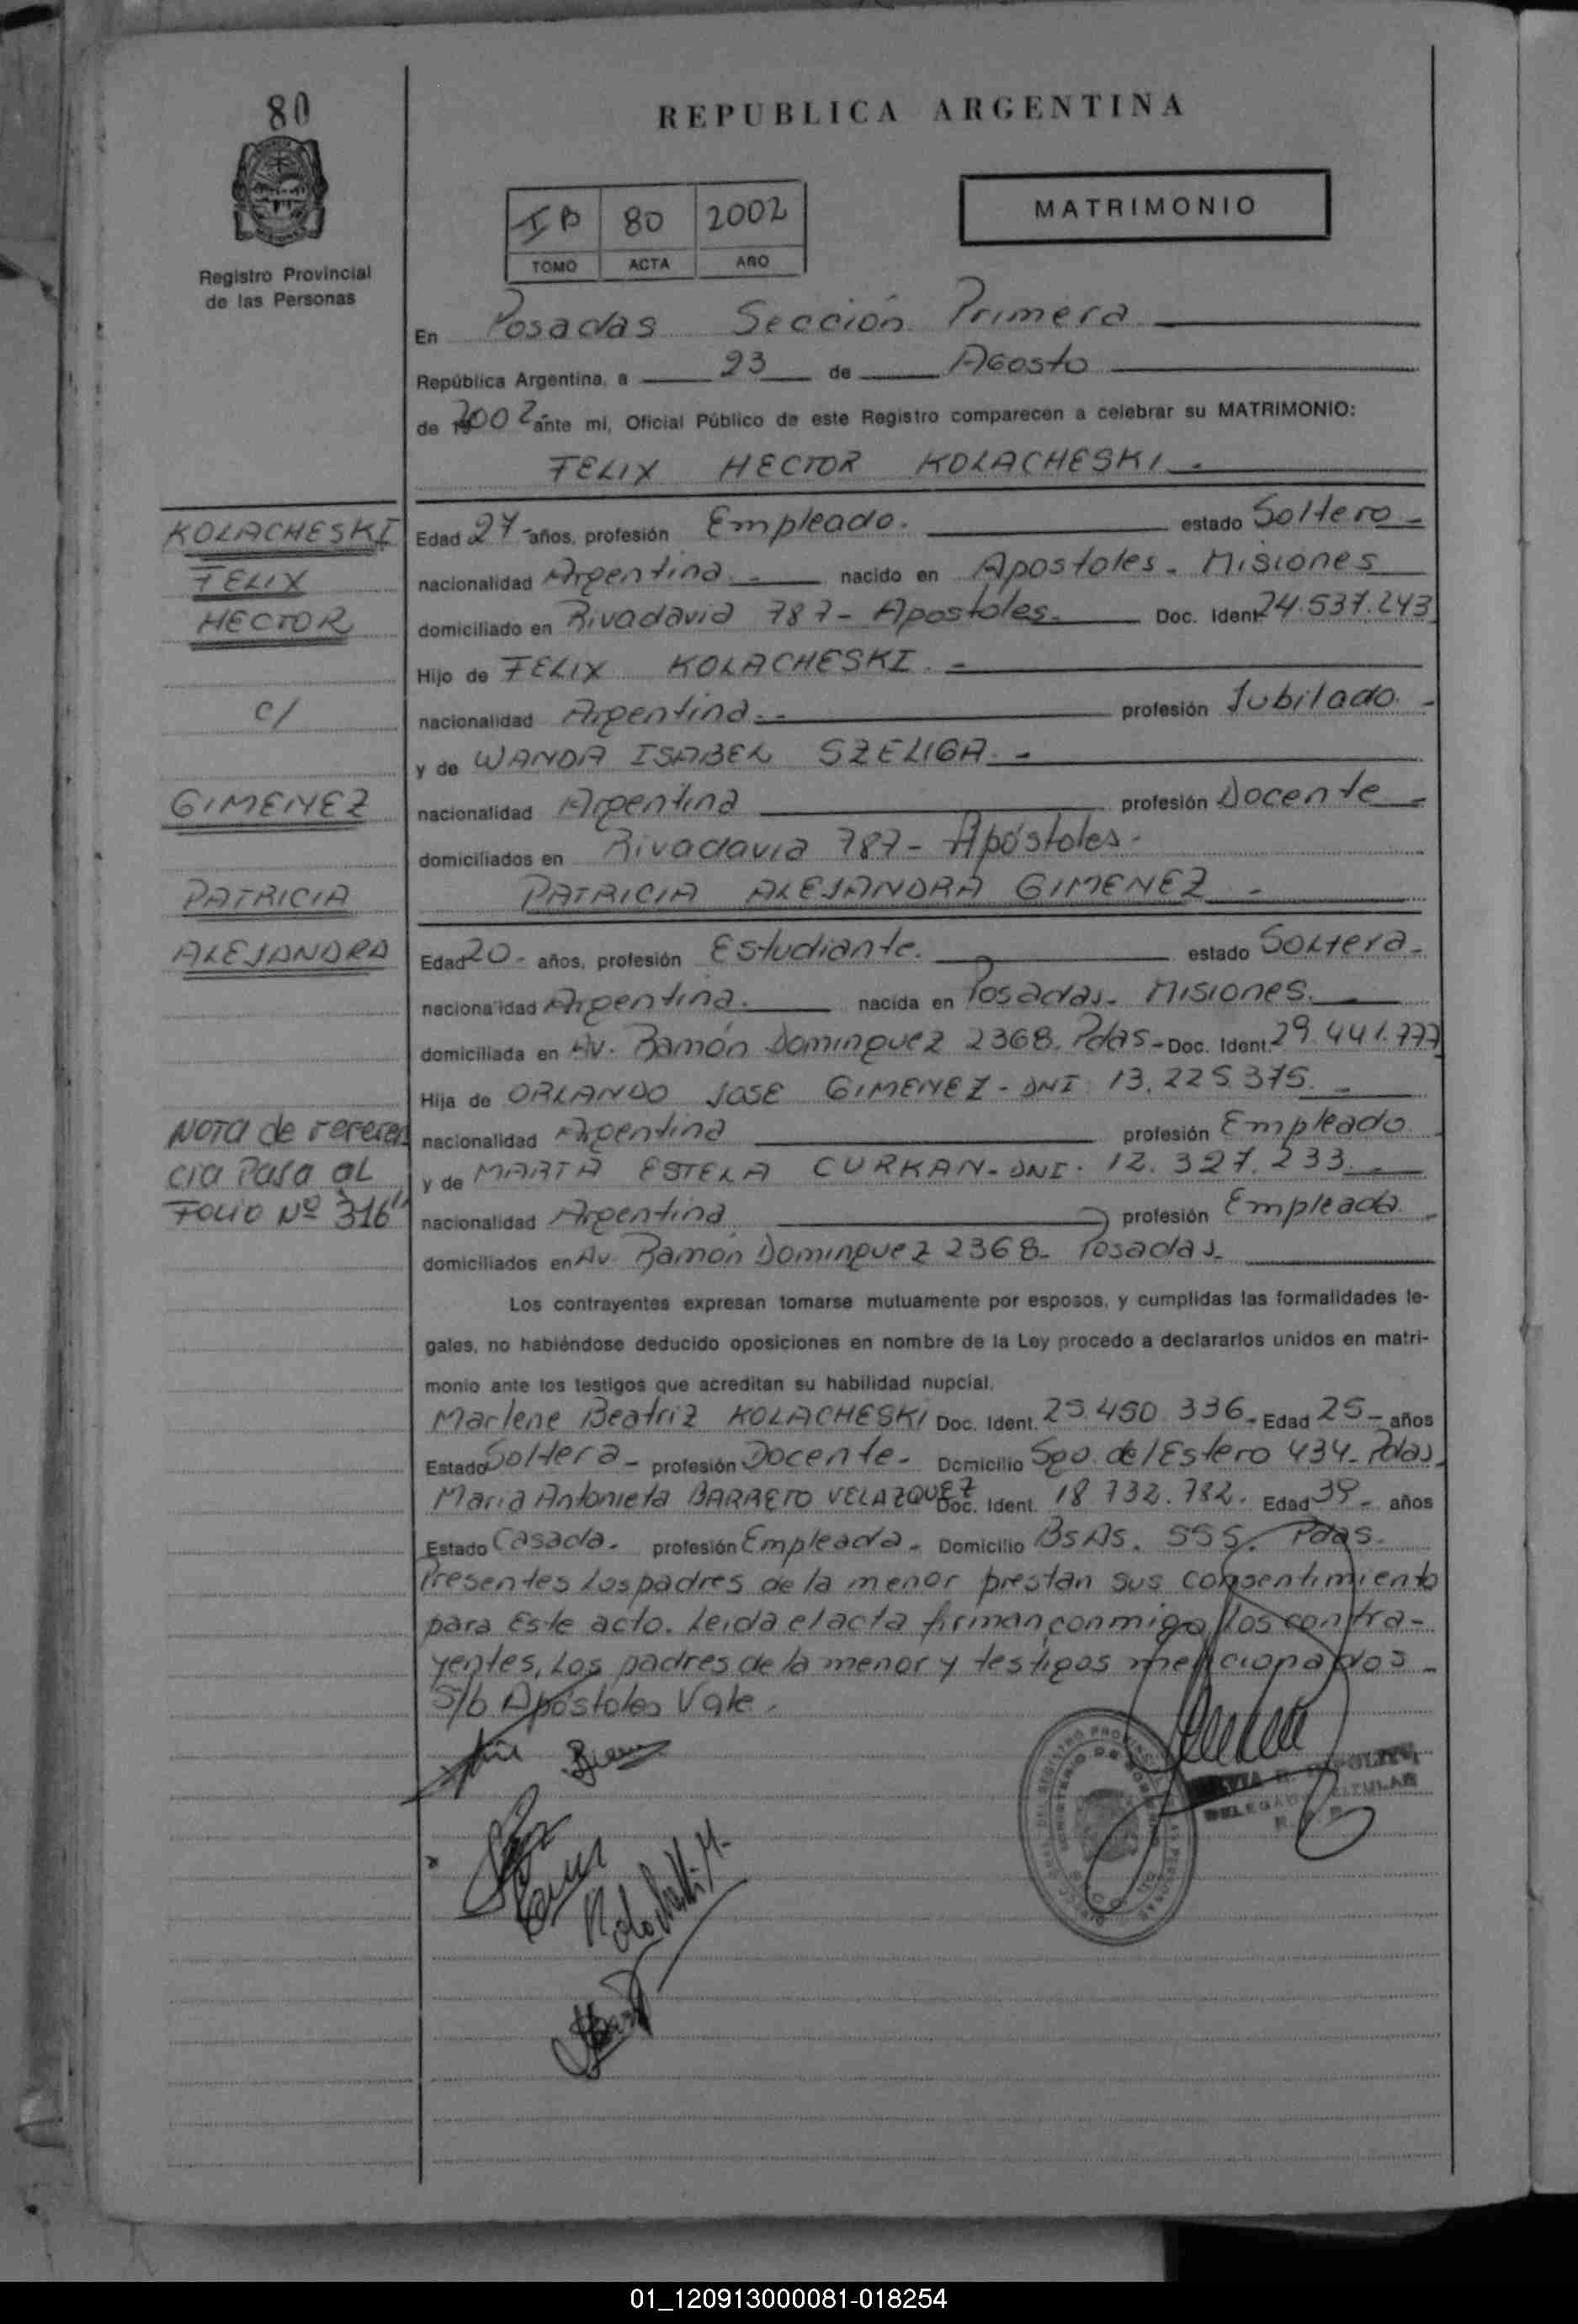 80
REPUBLICA ARGENTINA
Registro Provincial
de las Personas
I B 80 2002
TOMO ACTA AÑO
MATRIMONIO
En Posadas Sección Primera
República Argentina, a 23 de Agosto
de 2002 ante mi, Oficial Público de este Registro comparecen a celebrar su MATRIMONIO:
FELIX HECTOR KOLACHESKI.
KOLACHESKI
FELIX
HECTOR
c/
GIMENEZ
PATRICIA
ALEJANDRA
Nota de referen
cia Pasa al
Folio Nº 316
Edad 27 - años, profesión Empleado. estado Soltero -
nacionalidad Argentina. - nacido en Apostoles - Misiones
domiciliado en Rivadavia 787 - Apostoles. Doc. Ident. 24.537.243
Hijo de FELIX KOLACHESKI. -
nacionalidad Argentina. - profesión Jubilado. -
y de WANDA ISABEL SZELIGA. -
nacionalidad Argentina profesión Docente -
domiciliados en Rivadavia 787 - Apóstoles -
PATRICIA ALEJANDRA GIMENEZ -
Edad 20 - años, profesión Estudiante. estado Soltera -
nacionalidad Argentina. nacida en Posadas - Misiones.
domiciliada en Av. Ramón Dominguez 2368. Pdas - Doc. Ident. 29.441.777
Hija de ORLANDO JOSE GIMENEZ - DNI 13.225.375. -
nacionalidad Argentina profesión Empleado
y de MARTA ESTELA CURKAN - DNI. 12.327.233. -
nacionalidad Argentina profesión Empleada. -
domiciliados en Av. Ramón Dominguez 2368 - Posadas.
Los contrayentes expresan tomarse mutuamente por esposos, y cumplidas las formalidades le-
gales, no habiéndose deducido oposiciones en nombre de la Ley procedo a declararlos unidos en matri-
monio ante los testigos que acreditan su habilidad nupcial.
Marlene Beatriz KOLACHESKI Doc. Ident. 25.450.336 - Edad 25 - años
Estado Soltera - profesión Docente - Domicilio Sgo. del Estero 434 - Pdas.
Maria Antonieta BARRETO VELAZQUEZ Doc. Ident. 18.732.782. Edad 39 - años
Estado Casada. profesión Empleada - Domicilio BsAs. 555. Pdas.
Presentes los padres de la menor prestan sus consentimiento
para este acto. Leida el acta firman conmigo los contra-
yentes, Los padres de la menor y testigos mencionados -
S/b Apóstoles Vale.
Kolacheski M.
DELEGADA TITULAR
01_120913000081-018254